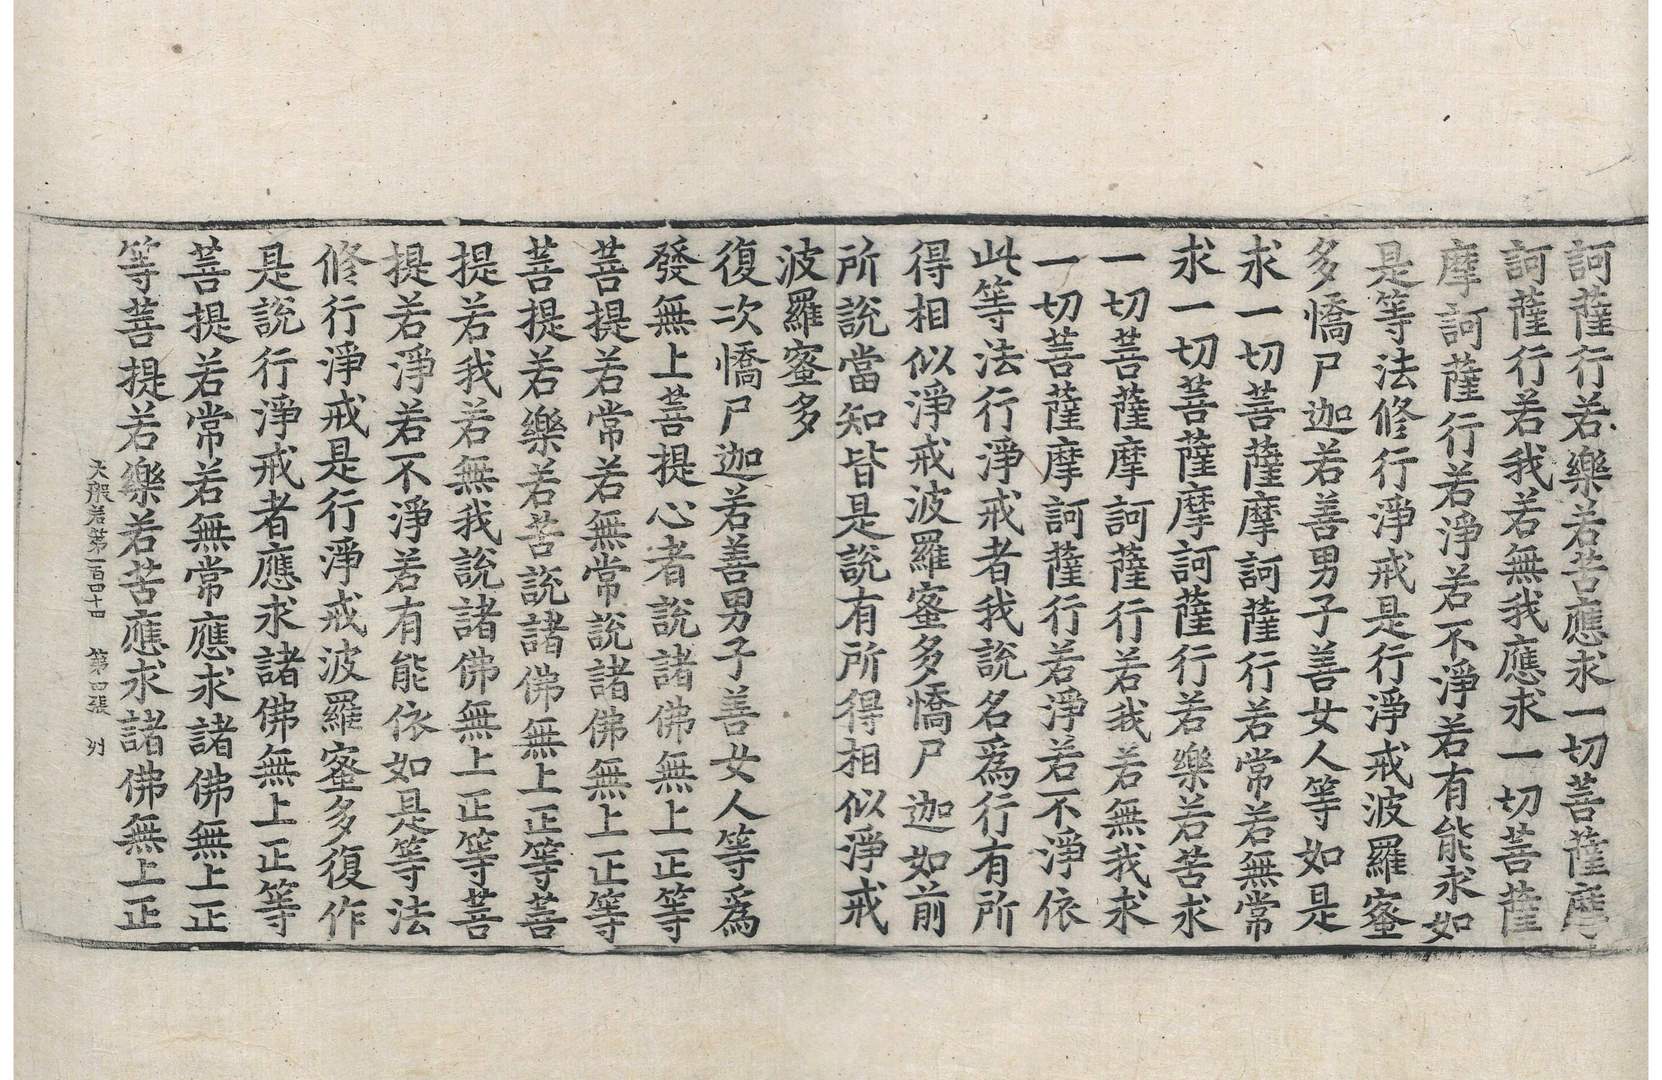 訶薩行若樂若苦應求一切菩薩摩
訶薩行若我若無我應求一切菩薩
摩訶薩行若淨若不淨若有能求如
是等法修行淨戒是行淨戒波羅蜜
多憍尸迦若善男子善女人等如是
求一切菩薩摩訶薩行若常若無常
求一切菩薩摩訶薩行若樂若苦求
一切菩薩摩訶薩行若我若無我求
一切菩薩摩訶薩行若淨若不淨依
此等法行淨戒者我說名爲行有所
得相似淨戒波羅蜜多憍尸迦如前
所說當知皆是說有所得相似淨戒
波羅蜜多
復次憍尸迦若善男子善女人等爲
發無上菩提心者說諸佛無上正等
菩提若常若無常說諸佛無上正等
菩提若樂若苦說諸佛無上正等菩
提若我若無我說諸佛無上正等菩
提若淨若不淨若有能依如是等法
修行淨戒是行淨戒波羅蜜多復作
是說行淨戒者應求諸佛無上正等
菩提若常若無常應求諸佛無上正
等菩提若樂若苦應求諸佛無上正
大般若第一百四十四 第四張 列